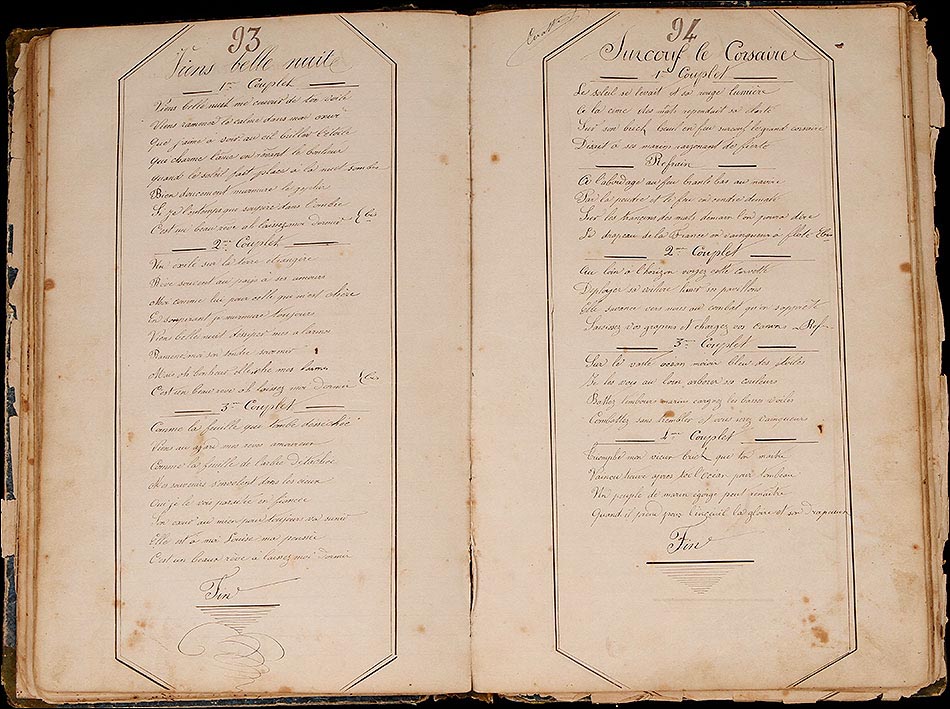 93
Viens belle nuit
1er Couplet
Viens belle nuit me couvrir de ton voile
Viens ramener le calme dans mon cœur
Que j'aime à voir au ciel briller l'etoile
Qui charme l'ame en rêvant le bonheur
Quand le soleil fait place a la nuit sombre
Bien doucement murmure le zephir
Si je l'ontemps que soupire dans l'ombre
C'est un beau rêve ah laissez moi dormir bis
2me Couplet
Un exilé sur la terre etrangere
Rêve souvent au pays à ses amours
Moi comme lui pour celle qui m'est chère
En soupirant je murmure toujours
Viens belle nuit dissiper mes alarmes
Ramene moi son tendre souvenir
Mais oh bonheur elle sèche mes larmes
C'est un beau rêve ah laissez moi dormir bis
3me Couplet
Comme la feuille qui tombe desechée
Viens au mes rêves amoureux
Comme la feuille de l'arbre détachée
Mes souvenirs s'envolent dans les cieux
Oui je te vois paraitre en fiancée
Ton cœur au mien pour toujours va s'unir
Elle est à moi Louise ma pensée
C'est un beau rêve a laissez moi dormir
Fin
94
Surcouf le Corsaire
1er Couplet
Le soleil se levait d'sa rouge lumière
Et la cime des mâts repandait sa clarté
Sur son brick l'œuil en feu surcouf le grand corsaire
Disait à ses marins rayonant de fierté
Refrain
A l'abordage au feu branle bas au navire
Par la poudre et le feu
Sur les tronçons des mats demain l'on pourra dire
Le drapeau de la France a vainqueur à flote bis
2me Couplet
Au loin à l'horizon voyez cette corvette
Deployer sa voilure hisser ses pavillons
Elle s'avance vers nous au combat qu'on s'apprête
Saisissez vos grapins et chargez vos canons Ref
3me Couplet
Sur le vaste océan moire bleu des étoiles
Je les vois au loin arborer ses couleurs
Battez tambours marins carguez les basses voiles
Combattez sans trembler et vous serez vainqueurs
4me Couplet
Triomphe mon vieux brick que ton maitre
Vaincu trouve apres toi l'Océan pour tombeau
Un peuple de marin egorgé peut renaitre
Quand il pour linceuil la gloire et son drapeau
Fin